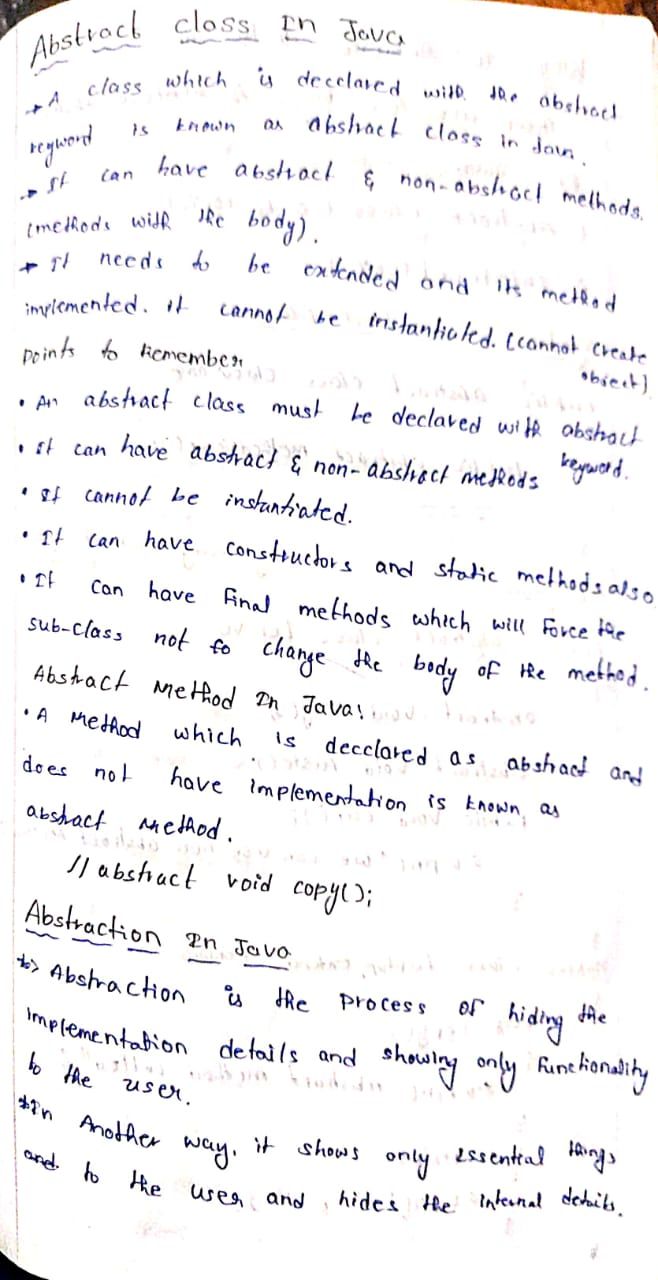 Abstract class In Java
→ A class which is decclared with the abstract
keyword is known as abstract class in Java.
→ It can have abstract & non-abstract methods.
(methods with the body).
→ It needs to be extended and its method
implemented. it cannot be instantiated. (cannot create
object)
Points to Remember
• An abstract class must be declared with abstract
keyword.
• It can have abstract & non-abstract methods
• It cannot be instantiated.
• It can have constructors and static methods also
• It can have Final methods which will Force the
sub-class not to change the body of the method.
Abstract Method In Java:
• A Method which is decclared as abstract and
does not have implementation is known as
abstract method.
// abstract void copy();
Abstraction In Java
=> Abstraction is the process of hiding the
implementation details and showing only Functionality
to the user.
In Another way, it shows only essential things
and to the user and hides the internal details.